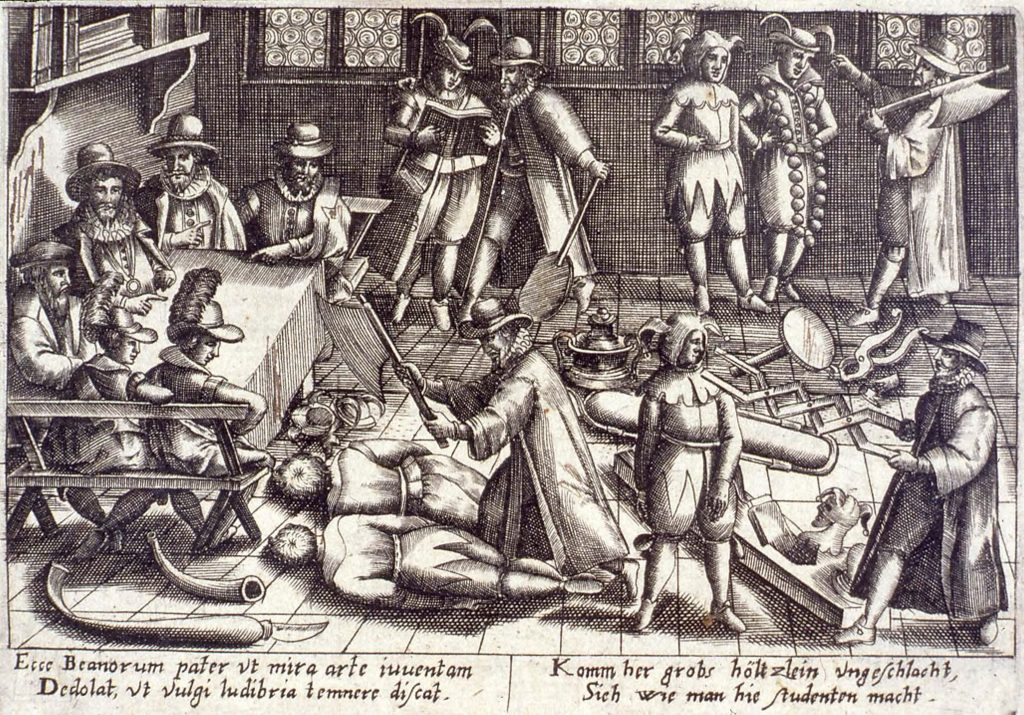 Ecce Beanorum pater vt mira arte iuuentam
Dedolat, vt vulgi ludibria temnere discat.
Komm her grobs höltzlein vngeschlacht,
Sieh wie man hie studenten macht.